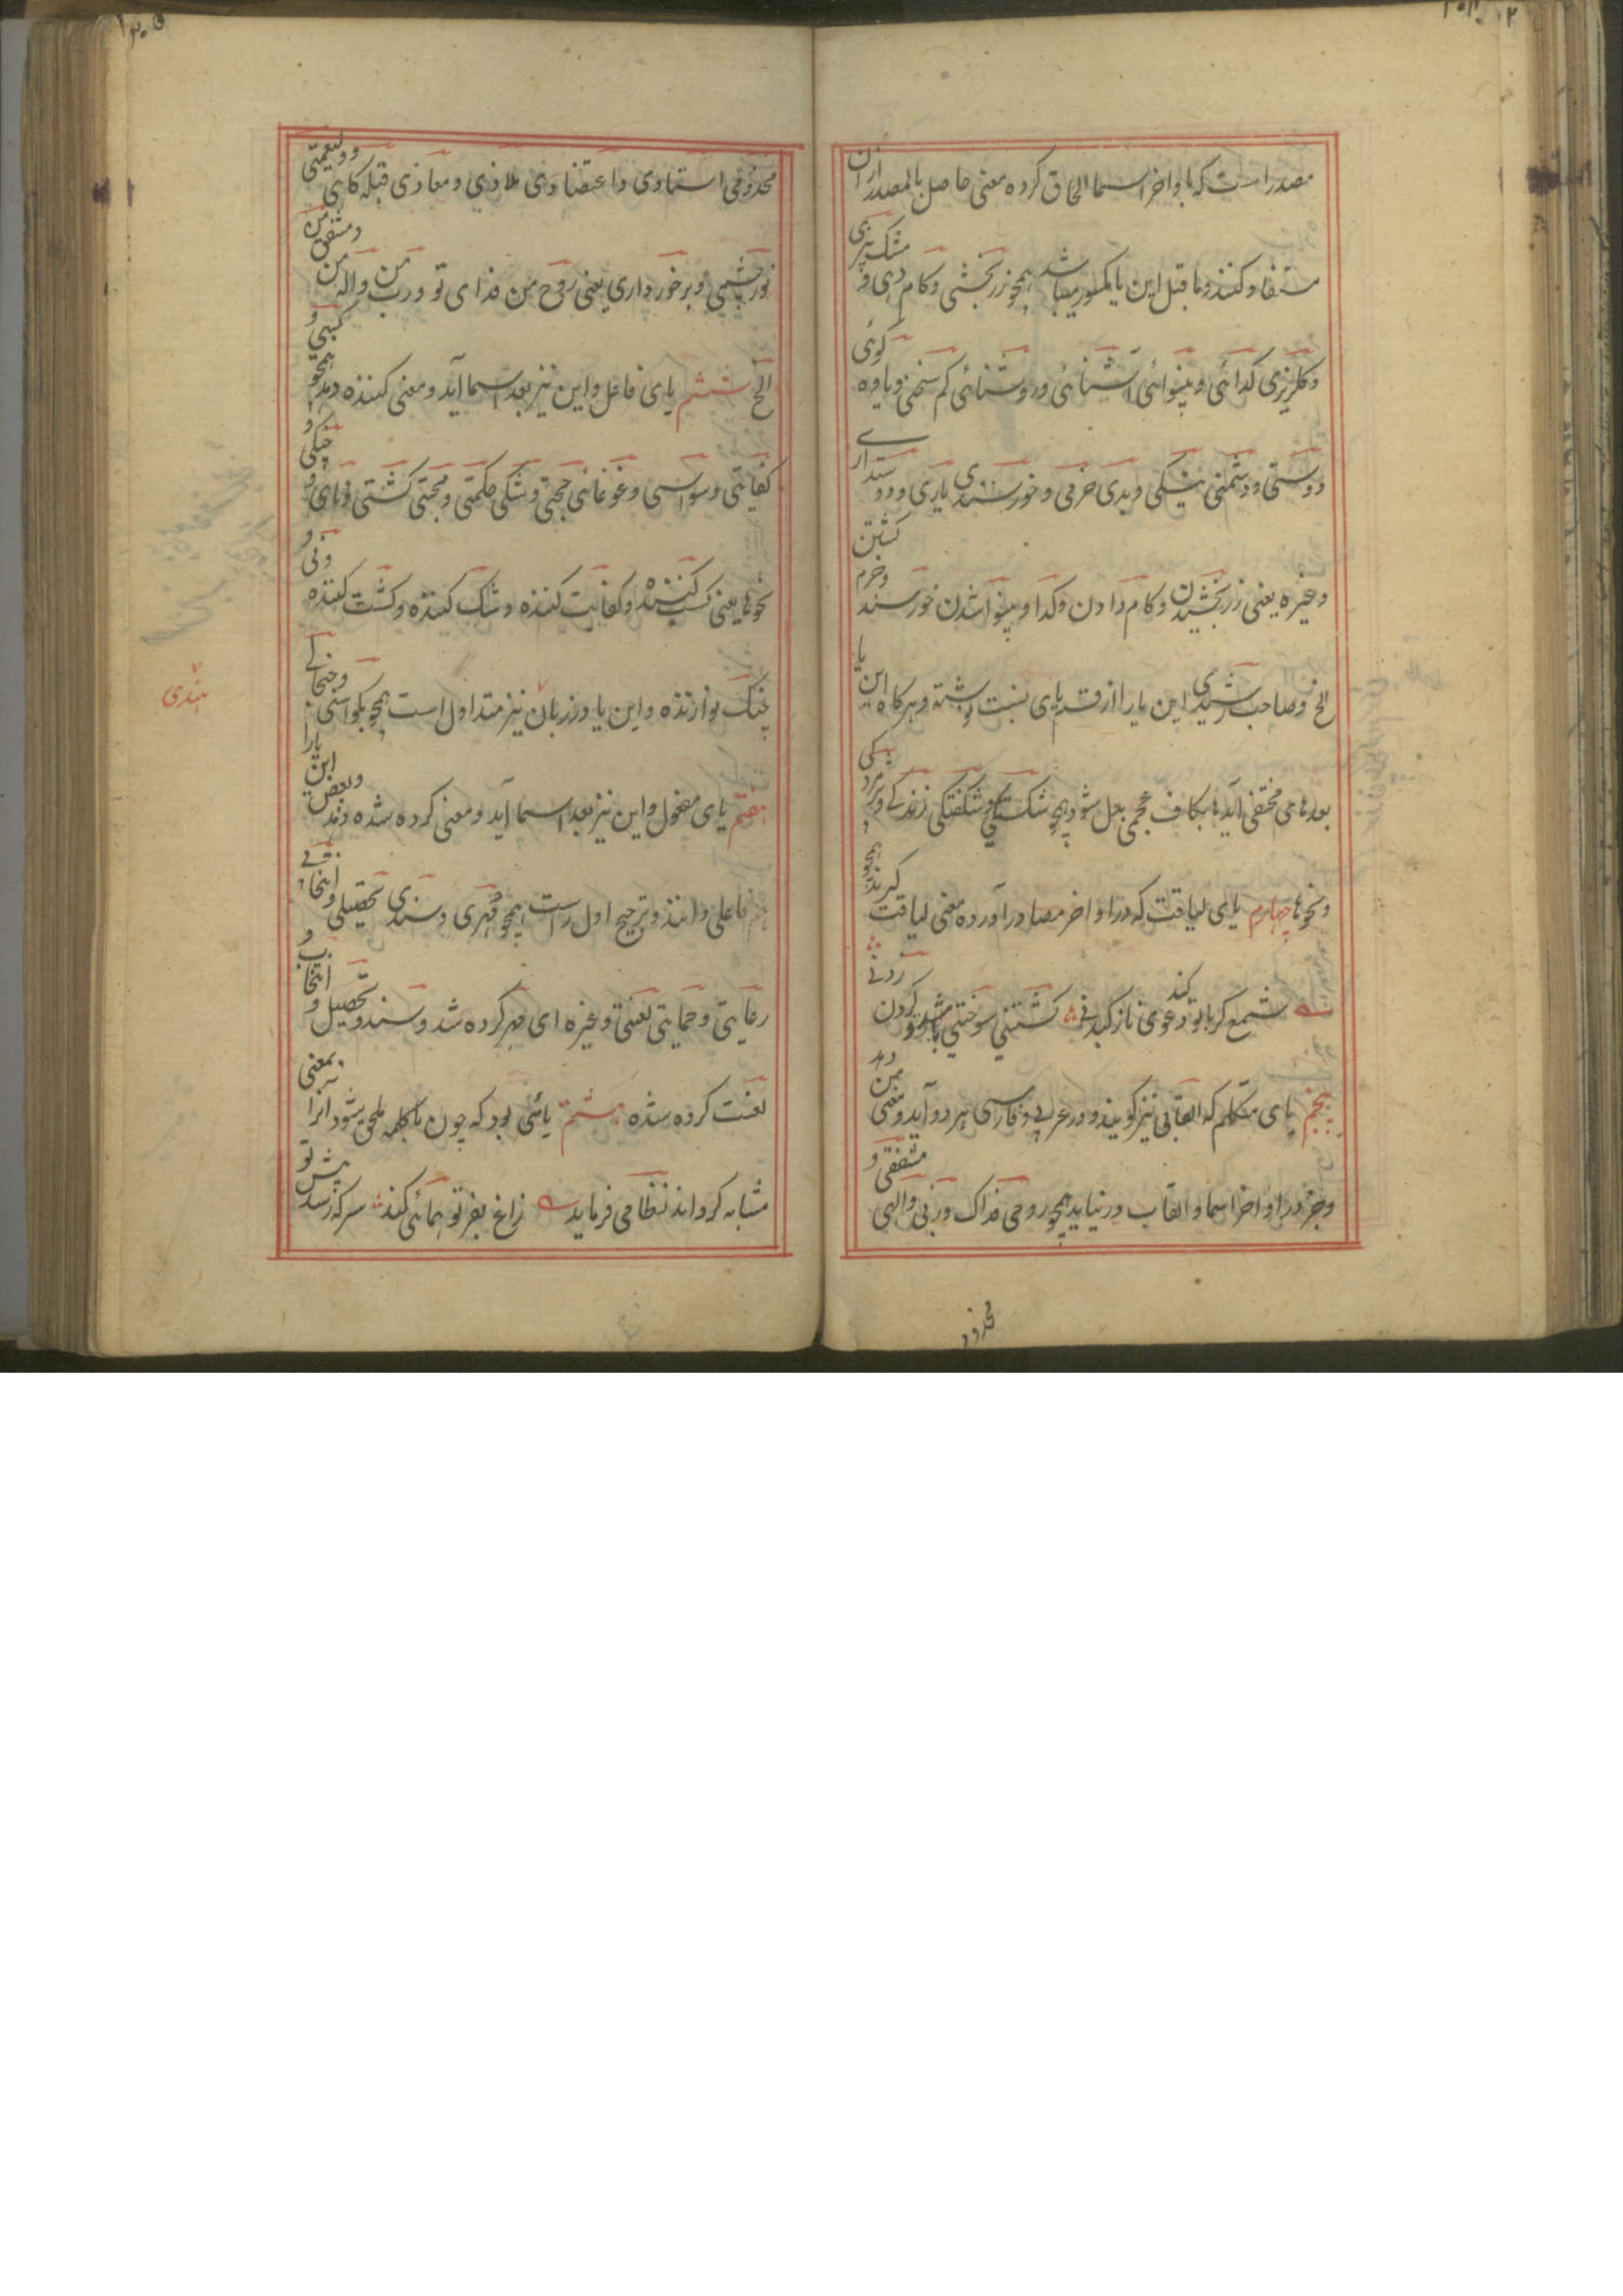 مصدر است که با واخر اسما الحاق کرده معنی حاصل بالمصدر ازان
مستفاد کنند و ماقبل این یا مکسور میباشد همچو زربخشی و کام دهی و مشک بیزی
و کلریزی کدائی و بینوائی آشنائی و روشنائی کم سخنی و یاوه کوئی
دوستی و دشمنی نیکی و بدی خرمی و خورسندی یاری و دوستداری
وغیره یعنی زر بخشیدن و کام دادن و کدا و بینوا شدن خورسند و خرم کشتن
الخ وصاحب رشیدی این یا را از قسم یای نسبت نوشته و هرکاه این یا
بعد های مختفی آید ها بکاف عجمی بدل شود همچو شکستکی و شکفتکی زندکی و
ونحوها چهارم یای لیاقت که در اواخر مصادر آورده معنی لیاقت کیرند همچو
شمع کر با تو دعوی ناز کند کشتنی سوختنی باشد و کردن زدنی
پنجم یای متکلم که القابی نیز کویند و در عربی و فارسی هر دو آید و معنی من دهد
وجز در اواخر اسما و القاب در نیاید همچو روحی فداک و ربی والهی مشفقی و
مخدو
مخدومی استادی و اعتضادی ملاذی و معاذی قبله کاهی و ولینعمتی
نور چشمی و برخورداری یعنی روح من فدای تو و رب من واله من و مشفق من
الخ ششم یای فاعل و این نیز بعد اسما آید و معنی کننده دهد همچو کسبی و
کفایتی و وسواسی و غوغائی حجتی و شکی حکمتی و محبتی کشتی و چنکی و
نحوها یعنی کسب کننده و کفایت کننده و شک کننده و کشت کننده و
چنک نوازنده و این یا در زبان نیز متداول است همچو بکواسی و جنجالی
هندی
هفتم یای مفعول و این نیز بعد اسما آید و معنی کرده شده دهد و بعض این یا را
هم فاعلی دانند و ترجیح اول راست همچو مهری و سندی تحصیلی و انتخابی
رعایتی و حمایتی لعنتی و غیره ای مهر کرده شد و سند و تحصیل و انتخاب و
لعنت کرده شده هشتم یائی بود که چون با کلمه ملحق شود آنرا بمعنی
مشابه کرداند نظامی فرماید زاغ بفر تو همائی کند سر که رسد پیش تو